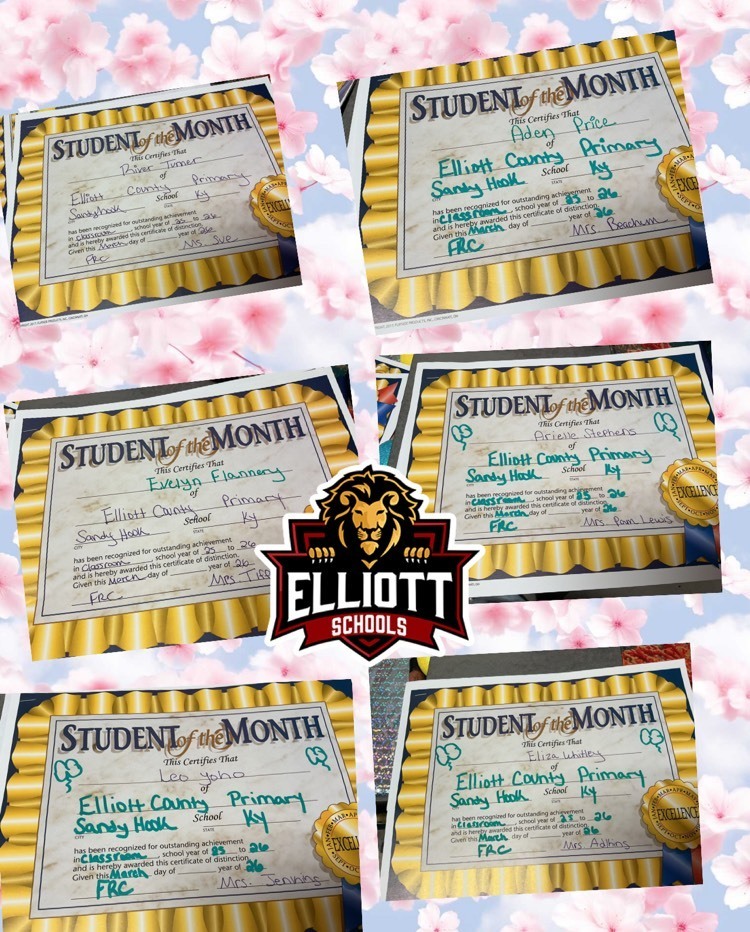 STUDENT of the MONTH
This Certifies That
River Turner
of
Elliott County Primary
School
Sandyhook Ky
STATE
has been recognized for outstanding achievement
in Classroom, school year of 25 to 26
and is hereby awarded this certificate of distinction.
Given this March day of year of 26
FRC Ms. Sue
STUDENT of the MONTH
This Certifies That
Aden Price
of
Elliott County Primary
Sandy Hook School Ky
CITY STATE
has been recognized for outstanding achievement
in Classroom, school year of 25 to 26
and is hereby awarded this certificate of distinction.
Given this March day of year of 26
FRC Mrs. Beachum
STUDENT of the MONTH
This Certifies That
Evelyn Flannery
of
Elliott County Primary
Sandy Hook School Ky
CITY STATE
has been recognized for outstanding achievement
in Classroom, school year of 25 to 26
and is hereby awarded this certificate of distinction.
Given this March day of year of 26
FRC Mrs
STUDENT of the MONTH
This Certifies That
Arielle Stephens
of
Elliott County Primary
Sandy Hook School Ky
STATE
has been recognized for outstanding achievement
in Classroom, school year of 25 to 26
and is hereby awarded this certificate of distinction.
Given this March day of year of 26
FRC Mrs Pam Lewis
EXCELLENCE
ELLIOTT
SCHOOLS
STUDENT of the MONTH
This Certifies That
Leo Yoho
of
Elliott County Primary
Sandy Hook School Ky
CITY STATE
has been recognized for outstanding achievement
in Classroom, school year of 25 to 26
and is hereby awarded this certificate of distinction.
Given this March day of year of 26
FRC Mrs. Jennings
STUDENT of the MONTH
This Certifies That
Eliza Whitley
of
Elliott County Primary
Sandy Hook School Ky
CITY STATE
has been recognized for outstanding achievement
in Classroom, school year of 25 to 26
and is hereby awarded this certificate of distinction.
Given this March day of year of 26
FRC Mrs Adkins